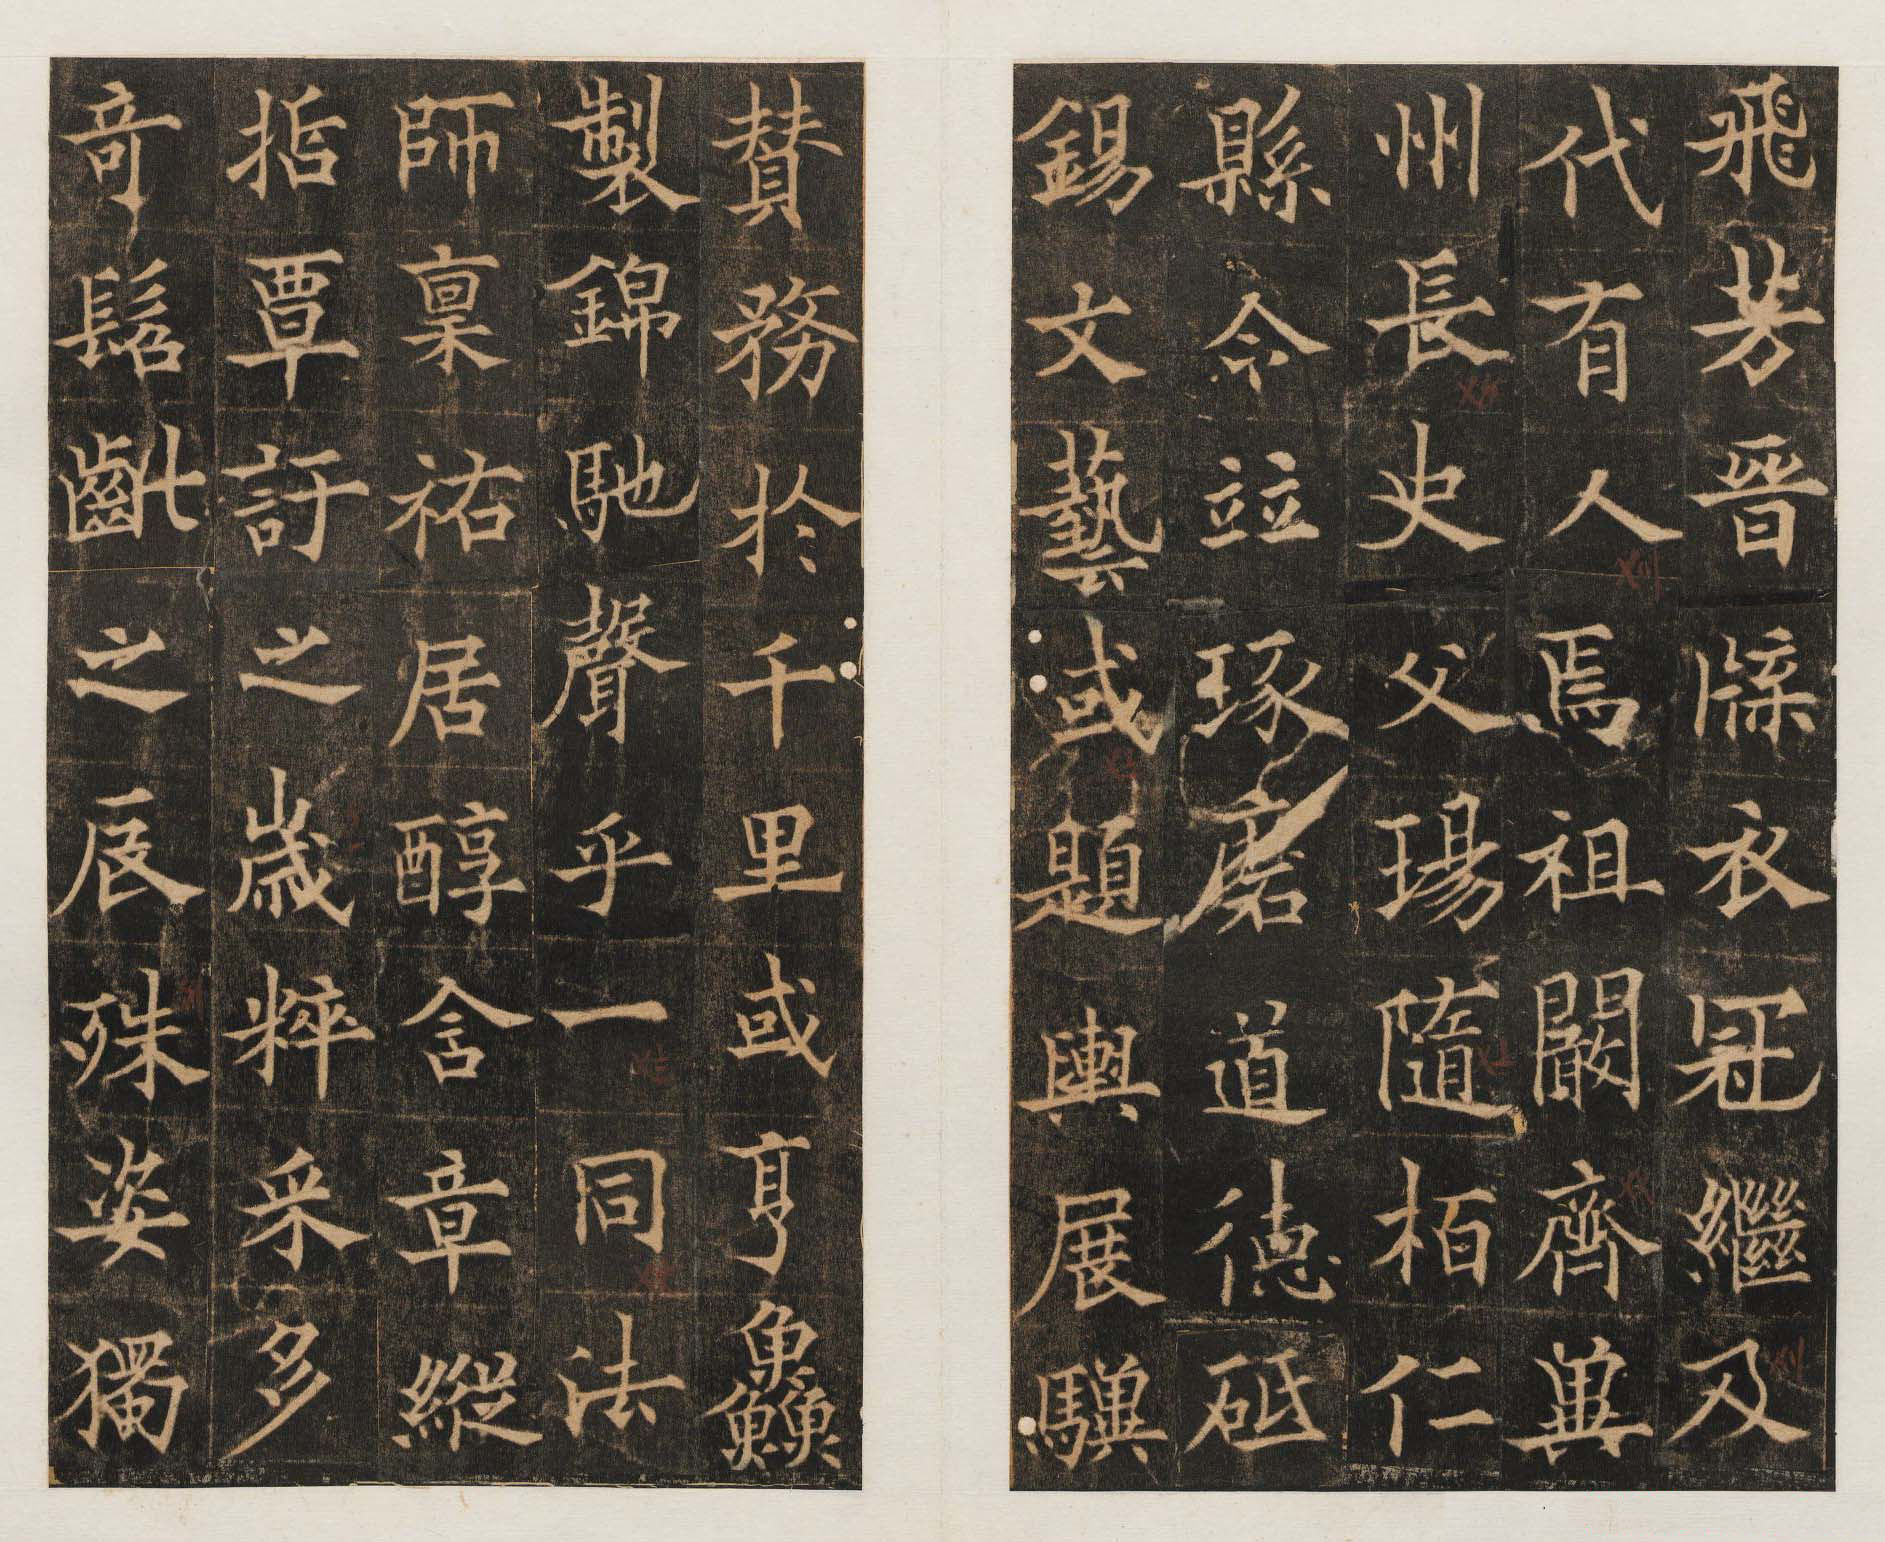 飛芳晉牒衣冠繼及
代有人焉祖闞齊冀
州長史父瑒隨柏仁
縣令竝琢磨道德砥
錫文藝或題輿展驥
賛務於千里或亨鱻
製錦馳聲乎一同法
師稟祐居醇含章縱
指覃訏之歲粹采多
奇髫齔之辰殊姿獨